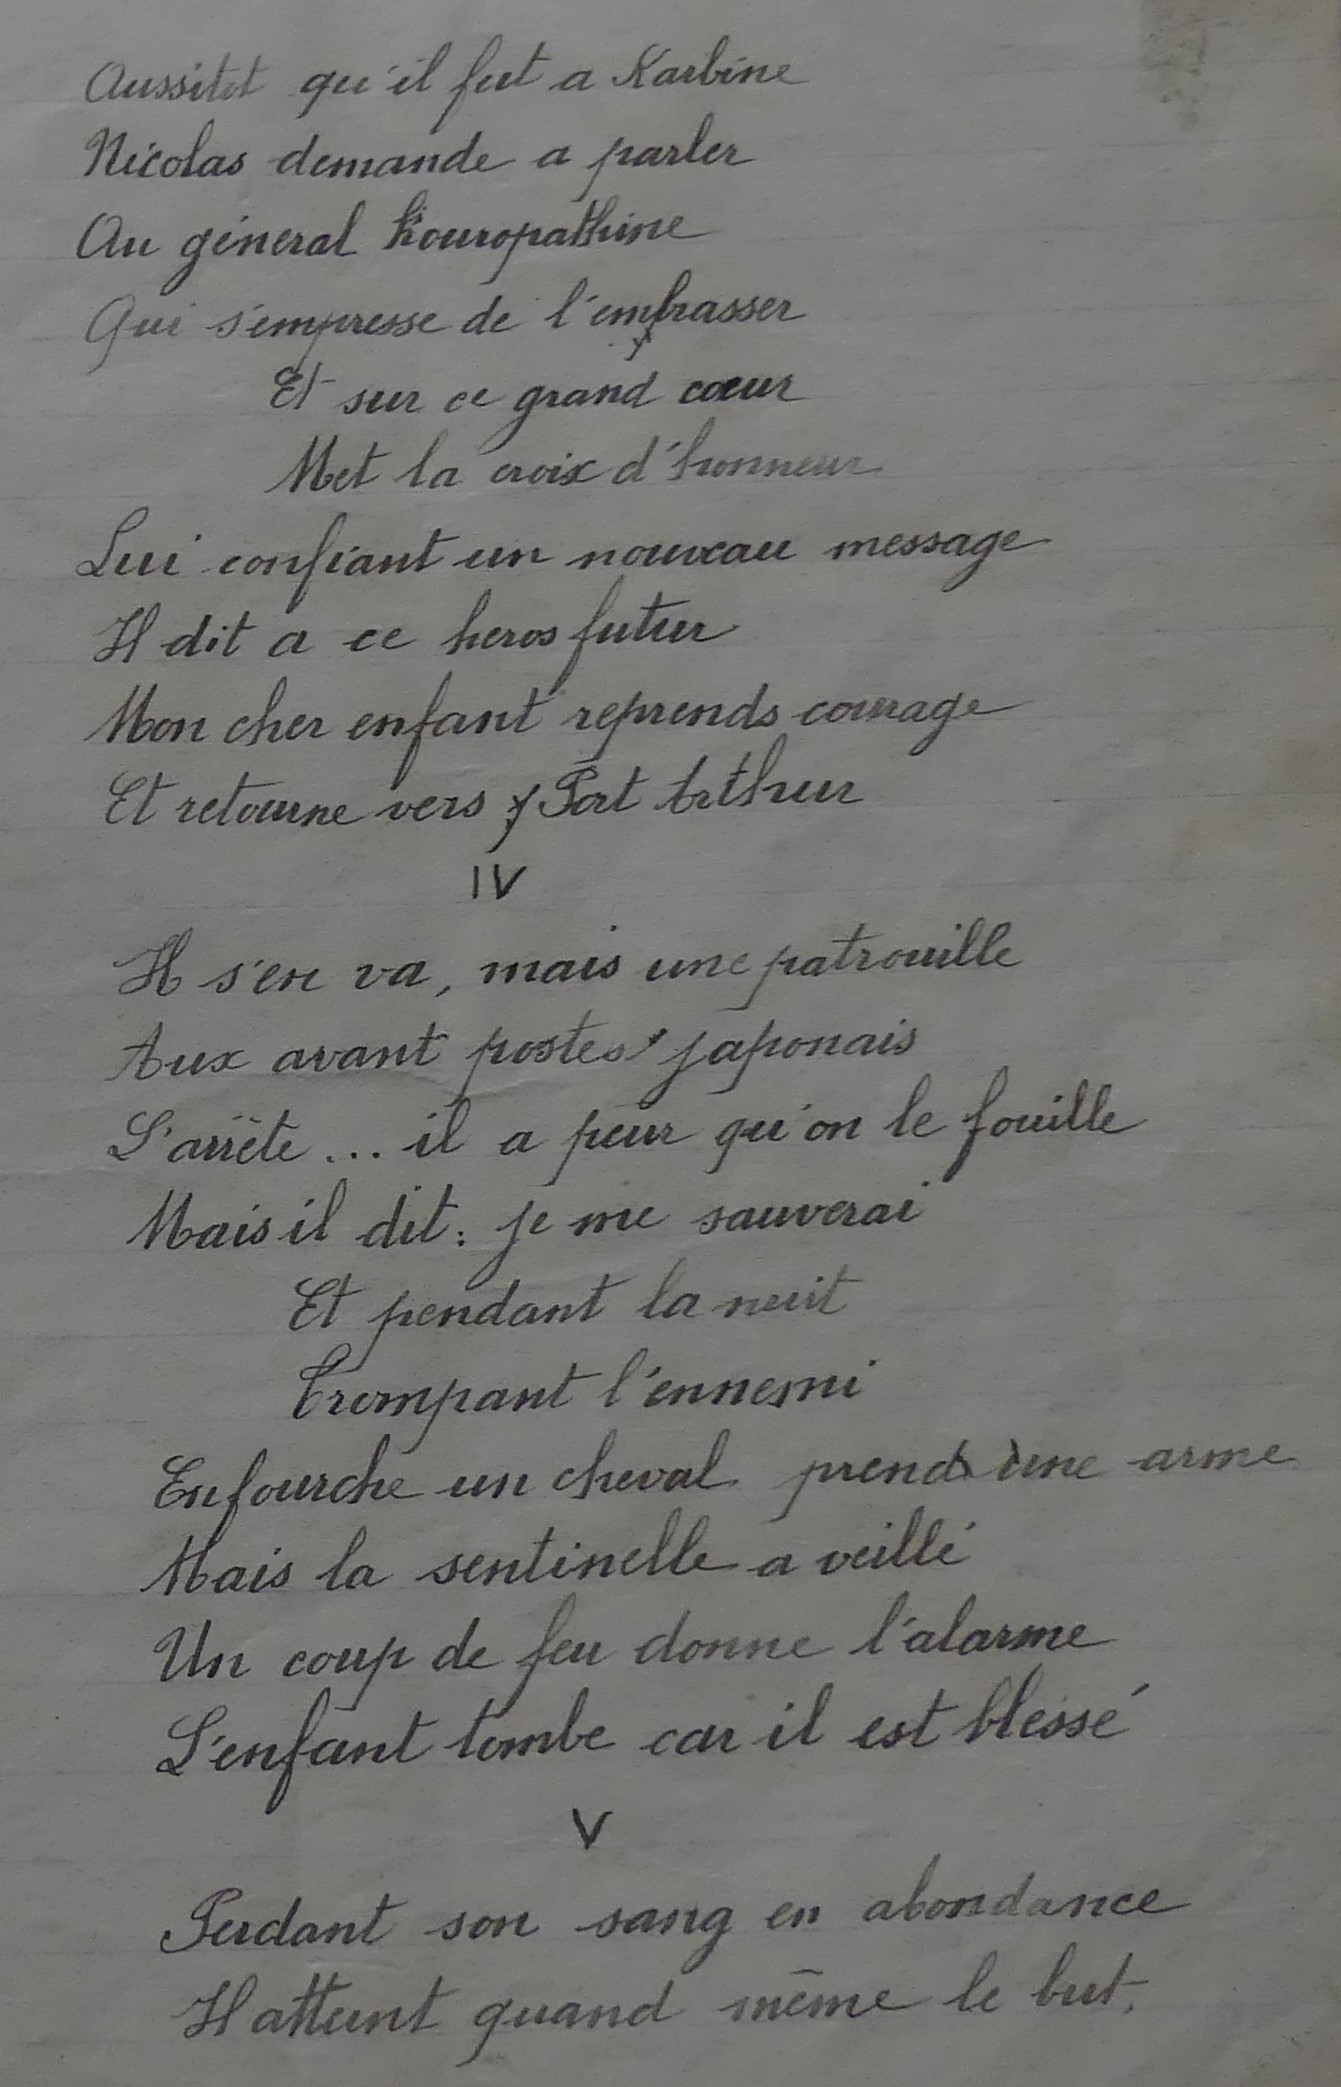 Aussitot qu'il fut a Karbine
Nicolas demande a parler
Au géneral Kouropathine
Qui s'empresse de l'embrasser
Et sur ce grand cœur
Met la croix d'honneur
Lui confiant un nouveau message
Il dit a ce heros futur
Mon cher enfant reprends courage
Et retourne vers Port Arthur
IV
Il s'en va, mais une patrouille
Aux avant postes japonais
L'arrête... il a peur qu'on le fouille
Mais il dit: je me sauverai
Et pendant la nuit
Trompant l'ennemi
Enfourche un cheval prend une arme
Mais la sentinelle a veillé
Un coup de feu donne l'alarme
L'enfant tombe car il est blessé
V
Perdant son sang en abondance
Il atteint quand même le but.